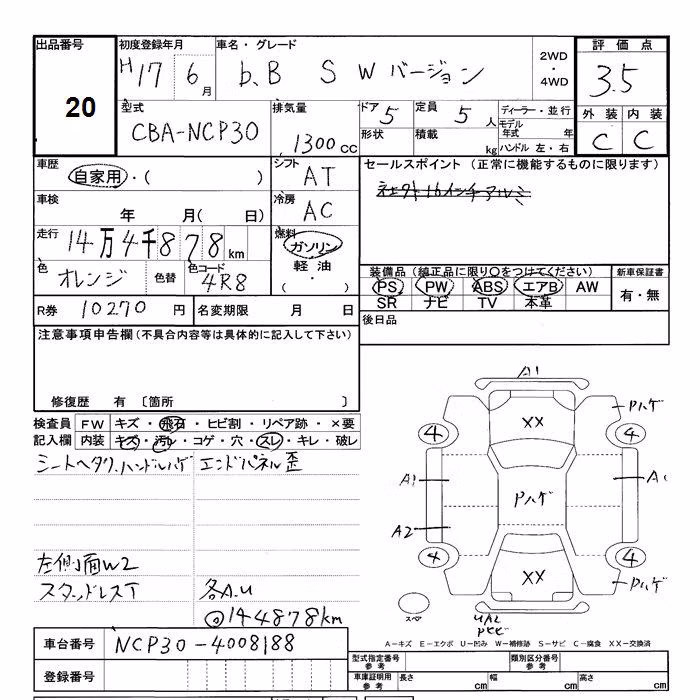 出品番号 初度登録年月 車名・グレード 2WD・4WD 評価点
20 H17 6月 b.B S W バージョン 3.5
型式 排気量 ドア 5 定員 5人 ディーラー・並行 外装 内装
CBA-NCP30 1300cc 形状 積載 kg モデル年式 年 C C
ハンドル 左・右
車歴 自家用・( ) シフト AT セールスポイント (正常に機能するものに限ります)
車検 年 月( 日) 冷房 AC
走行 14万4千878km 燃料 ガソリン
軽油
( ・ )
色 オレンジ 色替 色コード 4R8
装備品 (純正品に限り〇をつけてください) 新車保証書
PS PW ABS エアB AW 有・無
SR ナビ TV 本革
R券 10270円 名変期限 月 日
後日品
注意事項申告欄(不具合内容等は具体的に記入して下さい)
修復歴 有 〔箇所 〕
検査員記入欄 FW キズ・飛石・ヒビ割・リペア跡・×要
内装 キズ・汚レ・コゲ・穴・スレ・キレ・破レ
シートヘタク.ハンドルハゲ エンドパネル歪
左側面W2
スタッドレスT 各A.U
@144878km
A1
XX Pハゲ
4 4
A1 Pハゲ A1
A2
4 4
XX Pハゲ
スペア UA2
A-キズ E-エクボ U-凹み W-補修跡 S-サビ C-腐食 XX-交換済
車台番号 NCP30-4008188
型式指定番号 参考 類別区分番号 参考
登録番号 車庫証明用 参考 長さ cm 幅 cm 高さ cm